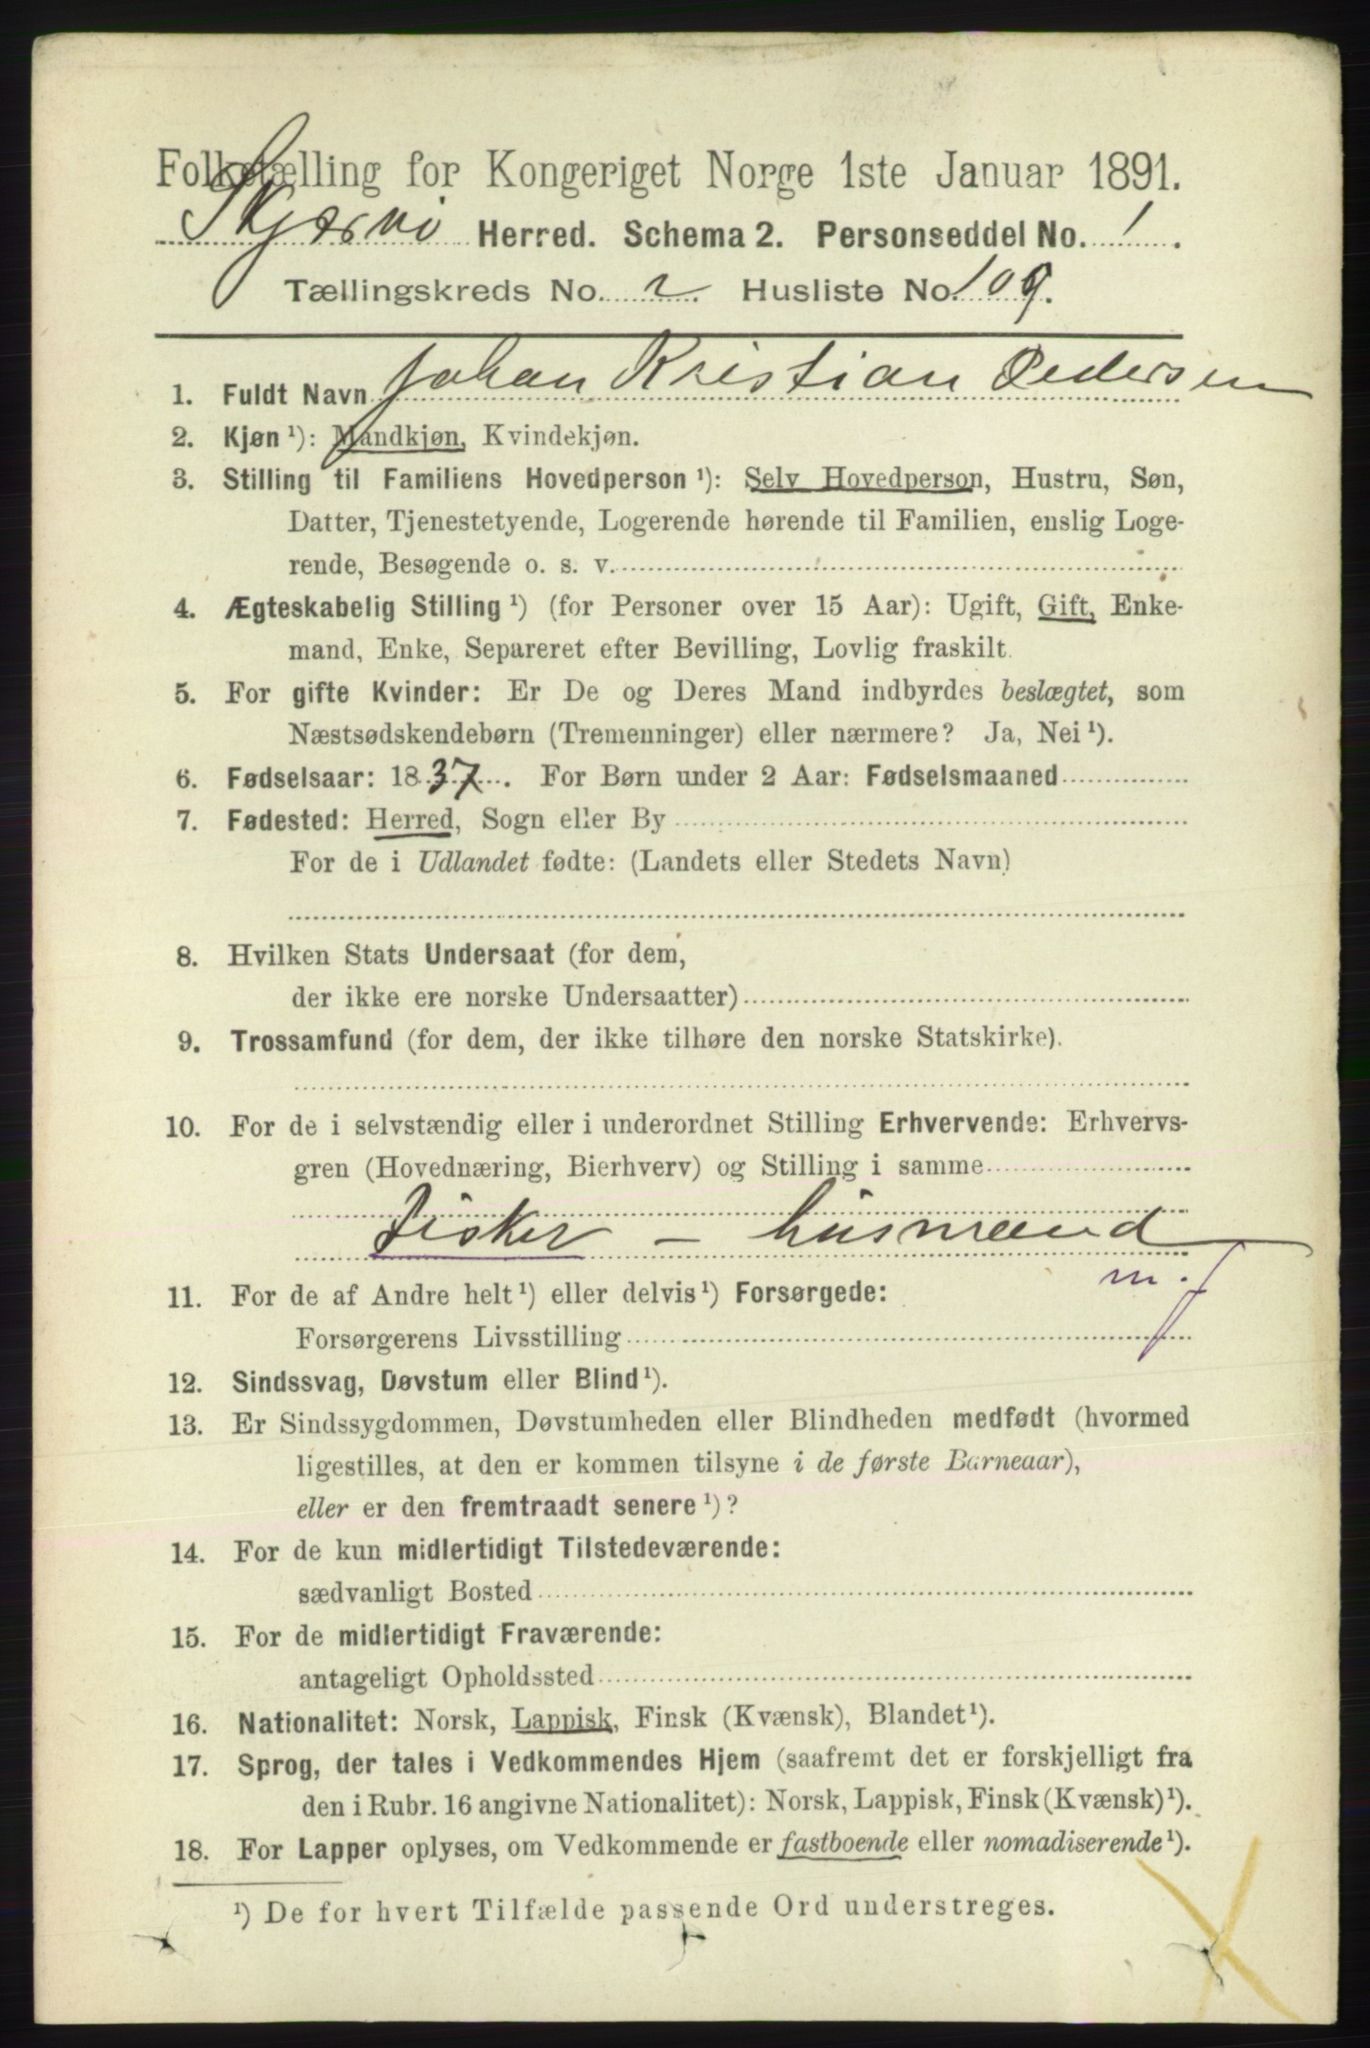 Folketælling for Kongeriget Norge 1ste Januar 1891.
Skjærvø Herred. Schema 2. Personseddel No. 1.
Tællingskreds No. 2. Husliste No. 109.
1. Fuldt Navn Johan Kristian Pedersen
2. Kjøn¹): Mandkjøn, Kvindekjøn.
3. Stilling til Familiens Hovedperson¹): Selv Hovedperson, Hustru, Søn,
Datter, Tjenestetyende, Logerende hørende til Familien, enslig Loge-
rende, Besøgende o. s. v.
4. Ægteskabelig Stilling¹) (for Personer over 15 Aar): Ugift, Gift, Enke-
mand, Enke, Separeret efter Bevilling, Lovlig fraskilt.
5. For gifte Kvinder: Er De og Deres Mand indbyrdes beslægtet, som
Næstsødskendebørn (Tremenninger) eller nærmere? Ja, Nei¹).
6. Fødselsaar: 1837. For Børn under 2 Aar: Fødselsmaaned
7. Fødested: Herred, Sogn eller By
For de i Udlandet fødte: (Landets eller Stedets Navn)
8. Hvilken Stats Undersaat (for dem,
der ikke ere norske Undersaatter)
9. Trossamfund (for dem, der ikke tilhøre den norske Statskirke).
10. For de i selvstændig eller i underordnet Stilling Erhvervende: Erhvervs-
gren (Hovednæring, Bierhverv) og Stilling i samme
Fisker – husmand
m. f
11. For de af Andre helt¹) eller delvis¹) Forsørgede:
Forsørgerens Livsstilling
12. Sindssvag, Døvstum eller Blind¹).
13. Er Sindssygdommen, Døvstumheden eller Blindheden medfødt (hvormed
ligestilles, at den er kommen tilsyne i de første Barneaar),
eller er den fremtraadt senere¹)?
14. For de kun midlertidigt Tilstedeværende:
sædvanligt Bosted
15. For de midlertidigt Fraværende:
antageligt Opholdssted
16. Nationalitet: Norsk, Lappisk, Finsk (Kvænsk), Blandet¹).
17. Sprog, der tales i Vedkommendes Hjem (saafremt det er forskjelligt fra
den i Rubr. 16 angivne Nationalitet): Norsk, Lappisk, Finsk (Kvænsk)¹).
18. For Lapper oplyses, om Vedkommende er fastboende eller nomadiserende¹).
¹) De for hvert Tilfælde passende Ord understreges.